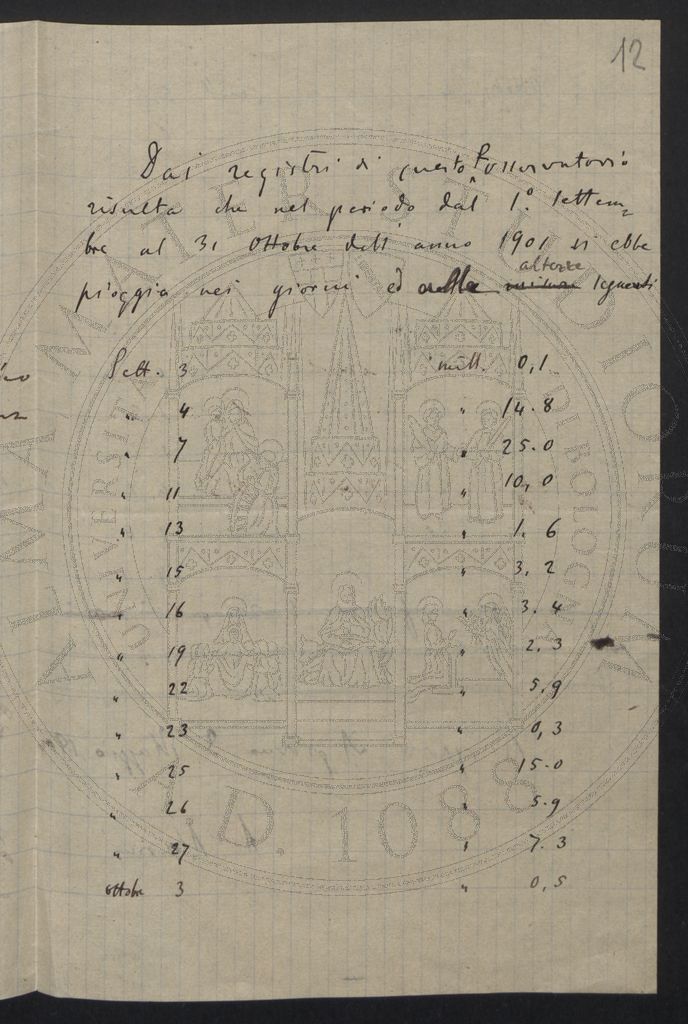 12
Dai registri di questo Osservatorio
risulta che nel periodo dal 1.º Settem-
bre al 31 Ottobre dell'anno 1901 si ebbe
altezze
pioggia nei giorni ed nelle seguenti
Sett. 3 mill. 0,1
" 4 " 14.8
" 7 " 25.0
" 11 " 10,0
" 13 " 1.6
" 15 " 3.2
" 16 " 3.4
" 19 " 2.3
" 22 " 5.9
" 23 " 0,3
" 25 " 15.0
" 26 " 5.9
" 27 " 7.3
Ottobre 3 " 0,5
ALMA MATER STUDIORUM
UNIVERSITA DI BOLOGNA
A.D. 1088